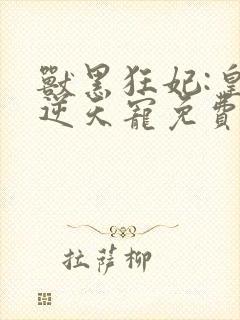 獸黑狂妃:皇
逆天寵免費
拉薩柳